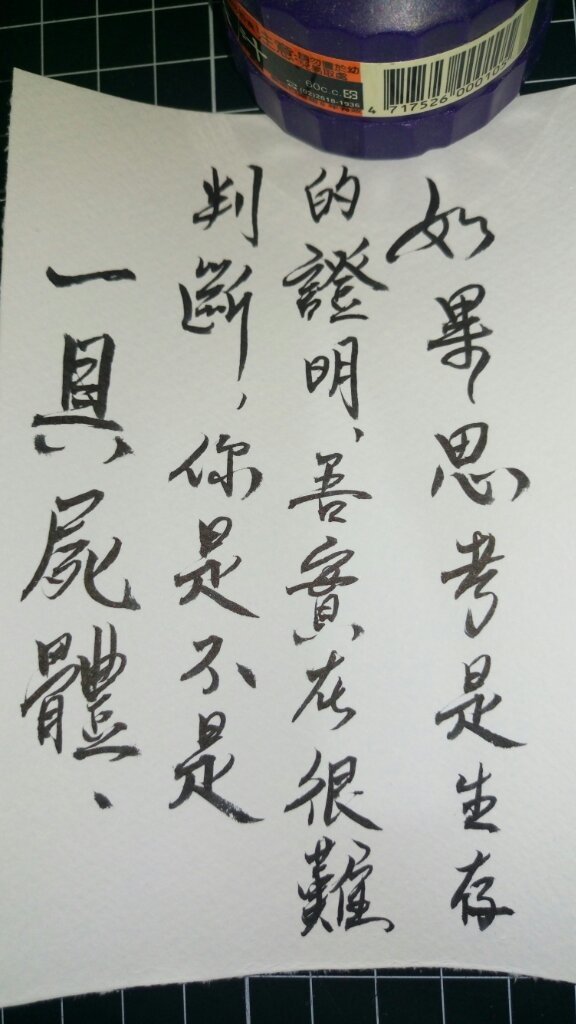 如果思考是生存
的證明、吾實在很難
判斷，你是不是
一具屍體、
60c.c.
(02)2618-1936
4 717526 000105